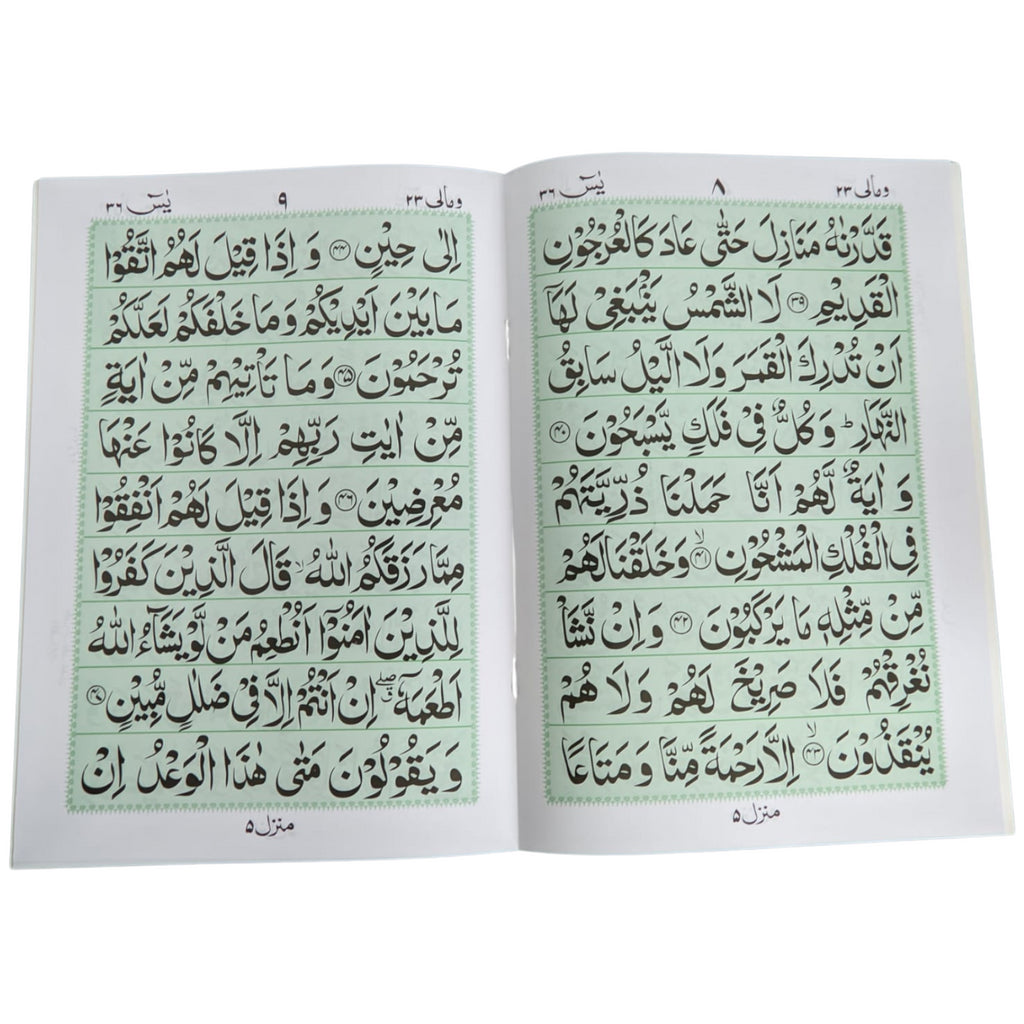 ومالی ۲۳ ۸ یٰسٓ ۳۶
قَدَّرْنٰهُ مَنَازِلَ حَتّٰى عَادَ كَالْعُرْجُوْنِ
الْقَدِيْمِ ۳۵ لَا الشَّمْسُ يَنْۢبَغِىْ لَهَاۤ
اَنْ تُدْرِكَ الْقَمَرَ وَلَا الَّيْلُ سَابِقُ
النَّهَارِ ؕ وَكُلٌّ فِىْ فَلَكٍ يَّسْبَحُوْنَ ۴۰
وَ اٰيَةٌ لَّهُمْ اَنَّا حَمَلْنَا ذُرِّيَّتَهُمْ
فِى الْفُلْكِ الْمَشْحُوْنِ ۙ ۴۱ وَخَلَقْنَا لَهُمْ
مِّنْ مِّثْلِهٖ مَا يَرْكَبُوْنَ ۴۲ وَاِنْ نَّشَاْ
نُغْرِقْهُمْ فَلَا صَرِيْخَ لَهُمْ وَلَا هُمْ
يُنْقَذُوْنَ ۙ ۴۳ اِلَّا رَحْمَةً مِّنَّا وَ مَتَاعًا
منزل ۵
ومالی ۲۳ ۹ یٰسٓ ۳۶
اِلٰى حِيْنٍ ۴۴ وَ اِذَا قِيْلَ لَهُمُ اتَّقُوْا
مَا بَيْنَ اَيْدِيْكُمْ وَمَا خَلْفَكُمْ لَعَلَّكُمْ
تُرْحَمُوْنَ ۴۵ وَمَا تَاْتِيْهِمْ مِّنْ اٰيَةٍ
مِّنْ اٰيٰتِ رَبِّهِمْ اِلَّا كَانُوْا عَنْهَا
مُعْرِضِيْنَ ۴۶ وَ اِذَا قِيْلَ لَهُمْ اَنْفِقُوْا
مِمَّا رَزَقَكُمُ اللّٰهُ ۙ قَالَ الَّذِيْنَ كَفَرُوْا
لِلَّذِيْنَ اٰمَنُوْۤا اَنُطْعِمُ مَنْ لَّوْ يَشَآءُ اللّٰهُ
اَطْعَمَهٗۤ ۖ اِنْ اَنْتُمْ اِلَّا فِىْ ضَلٰلٍ مُّبِيْنٍ ۴۷
وَ يَقُوْلُوْنَ مَتٰى هٰذَا الْوَعْدُ اِنْ
منزل ۵